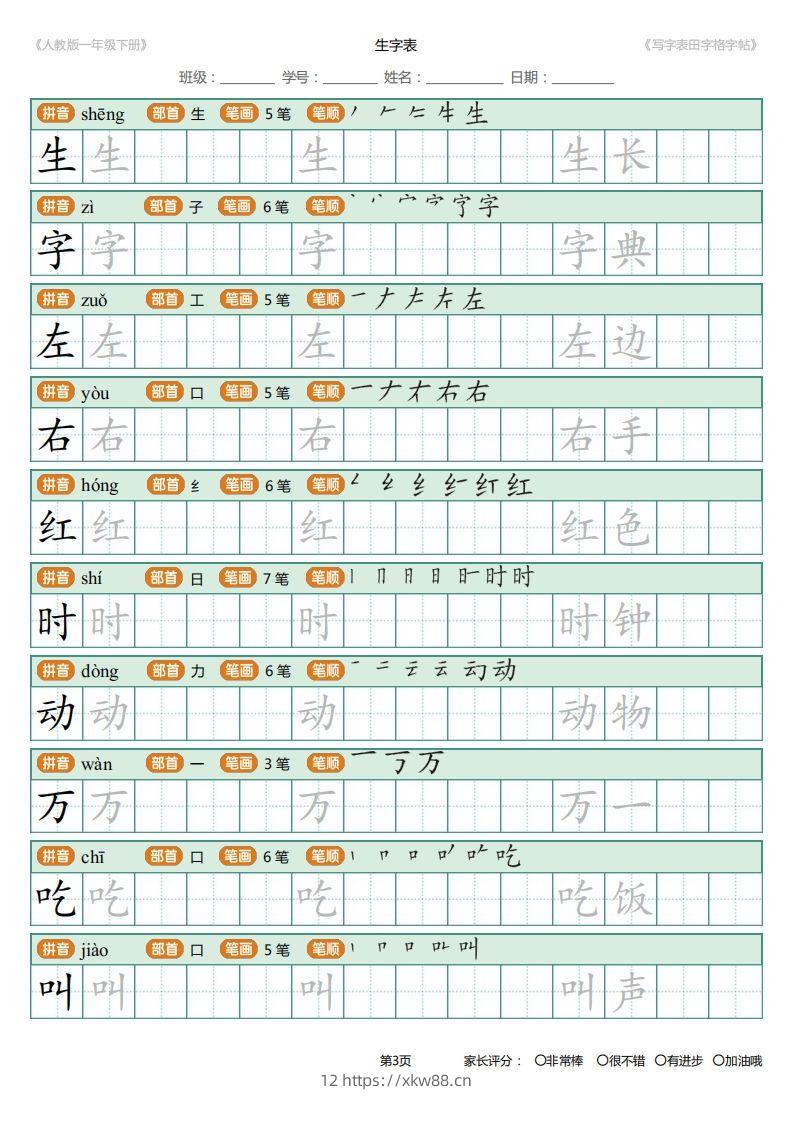 《人教版一年级下册》 生字表 《写字表田字格字帖》
班级：_______ 学号：_______ 姓名：__________ 日期：________
拼音 shēng 部首 生 笔画 5 笔 笔顺 丿 𠂉 生
生 生 生 生 长
拼音 zì 部首 子 笔画 6 笔 笔顺 丶 宀 字
字 字 字 字 典
拼音 zuǒ 部首 工 笔画 5 笔 笔顺 一 𠂇 左
左 左 左 左 边
拼音 yòu 部首 口 笔画 5 笔 笔顺 一 𠂇 右 右
右 右 右 右 手
拼音 hóng 部首 纟 笔画 6 笔 笔顺 纟 红
红 红 红 红 色
拼音 shí 部首 日 笔画 7 笔 笔顺 丨 冂 日 时 时
时 时 时 时 钟
拼音 dòng 部首 力 笔画 6 笔 笔顺 一 二 云 动
动 动 动 动 物
拼音 wàn 部首 一 笔画 3 笔 笔顺 一 丂 万
万 万 万 万 一
拼音 chī 部首 口 笔画 6 笔 笔顺 丨 口 吃
吃 吃 吃 吃 饭
拼音 jiào 部首 口 笔画 5 笔 笔顺 丨 口 叫
叫 叫 叫 叫 声
第3页 家长评分： 〇非常棒 〇很不错 〇有进步 〇加油哦
12 https://xkw88.cn